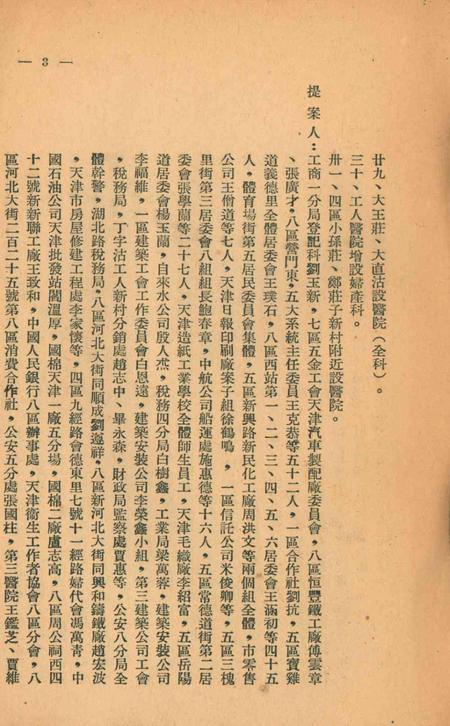 廿九、大王莊、大直沽設醫院（全科）。
三十、工人醫院增設婦產科。
卅一、四區小孫莊、鄭莊子新村附近設醫院。
提案人：工商一分局登記科劉玉新，七區五金工會天津汽車製配廠委員會，八區恒豐鐵工廠傅雲章
、張廣才，八區營門東，五大系統主任委員王克恭等五十二人，一區合作社劉抗，五區寶雞
道義德里全體居委會王璞石，八區西站第一、二、三、四、五、六居委會王涵初等四十五
人，體育場街第五居民委員會集體，五區新興路新民化工廠周洪文等兩個組全體，市零售
公司王僧道等七人，天津日報印刷廠案子組徐鶴鳴，一區信託公司米俊卿等，五區三槐
里街第三居委會八組組長鮑春章，中航公司船運處施惠德等十六人，五區常德道街第二居
委會張學蘭等二十七人，天津造紙工業學校全體師生員工，天津毛織廠李紹富，五區岳陽
道居委會楊玉蘭，自來水公司殷人杰，稅務四分局白樹鑫，工業局梁萬蓉，建築安裝公司
李福維，一區建築工會工作委員會白恩遠，建築安裝公司李榮鑫小組，第三建築公司工會
，稅務局，丁字沽工人新村分銷處趙志中、畢永森，財政局監察處賈惠等，公安八分局全
體幹警，湖北路稅務局，八區河北大街同順成劉遵祥，八區新河北大街同興和鑄鐵廠趙宏波
，天津市房屋修建工程處李家懷等，四區九經路會德東里七號十一經路婦代會馮萬青，中
國石油公司天津批發站閻溫厚，國棉天津一廠五分場，國棉二廠盧志高，八區周公祠西四
十二號新新聯工廠王政和，中國人民銀行八區辦事處，天津衛生工作者協會八區分會，八
區河北大街二百二十五號第八區消費合作社，公安五分處張國柱，第三醫院王鑑芝、賈維
— 3 —